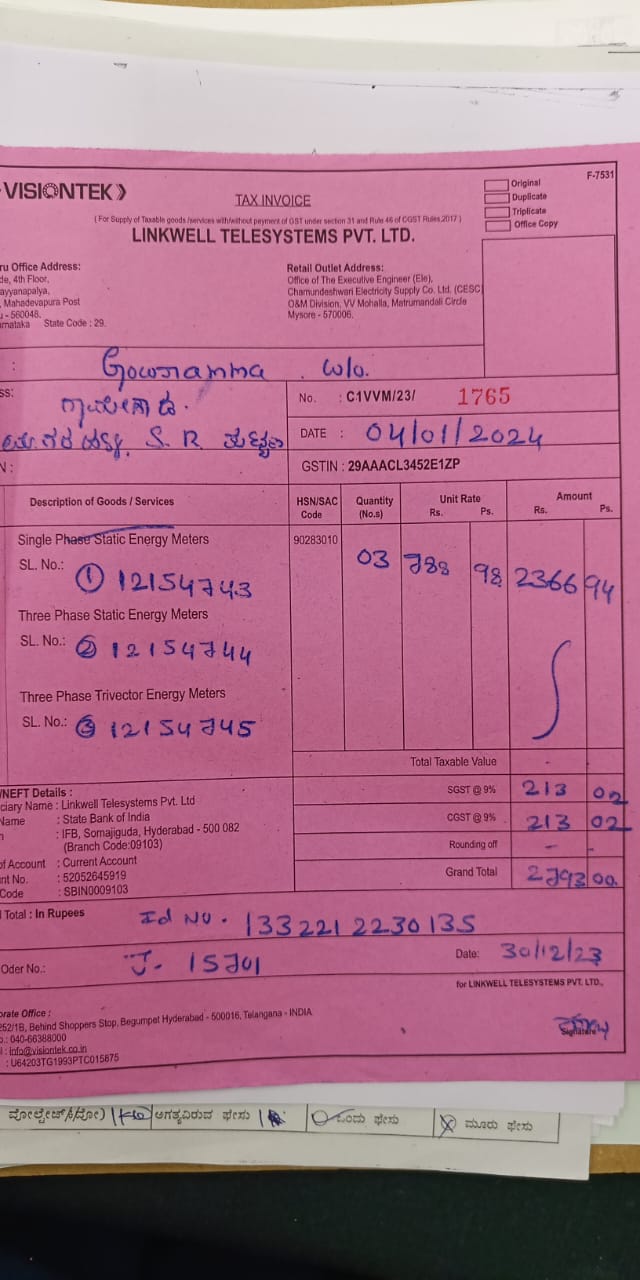 VISIONTEK
TAX INVOICE
Original
Duplicate
Triplicate
Office Copy
F-7531
( For Supply of Taxable goods /services with/without payment of GST under section 31 and Rule 46 of CGST Rules,2017 )
LINKWELL TELESYSTEMS PVT. LTD.
ru Office Address:
de, 4th Floor,
ayyanapalya,
, Mahadevapura Post
- 560048.
rnataka State Code : 29.
Retail Outlet Address:
Office of The Executive Engineer (Ele),
Chamundeshwari Electricity Supply Co. Ltd. (CESC)
O&M Division, VV Mohalla, Matrumandali Circle
Mysore - 570006.
: Gowramma w/o.
ss:
S. R.
N :
No. : C1VVM/23/ 1765
DATE : 04/01/2024
GSTIN : 29AAACL3452E1ZP
Description of Goods / Services HSN/SAC Code Quantity (No.s) Unit Rate Rs. Ps. Amount Rs. Ps.
Single Phase Static Energy Meters 90283010 03 788 98 2366 94
SL. No.: ① 12154743
Three Phase Static Energy Meters
SL. No.: ② 12154744
Three Phase Trivector Energy Meters
SL. No.: ③ 12154745
Total Taxable Value -
/NEFT Details :
SGST @ 9% 213 02
ciary Name : Linkwell Telesystems Pvt. Ltd
CGST @ 9% 213 02
Name : State Bank of India
: IFB, Somajiguda, Hyderabad - 500 082
(Branch Code:09103)
Rounding off - -
of Account : Current Account
Grand Total 2793 00.
nt No. : 52052645919
Code : SBIN0009103
Total : In Rupees Id NO. 1332212230135
Oder No.: J- 15701 Date: 30/12/23
for LINKWELL TELESYSTEMS PVT. LTD.,
orate Office :
252/1B, Behind Shoppers Stop, Begumpet Hyderabad - 500016, Telangana - INDIA
o.: 040-66388000
l : info@visiontek.co.in
: U64203TG1993PTC015875
Signature
ಅಗತ್ಯವಿರುವ ಫೇಸು ಒಂದು ಫೇಸು ಮೂರು ಫೇಸು